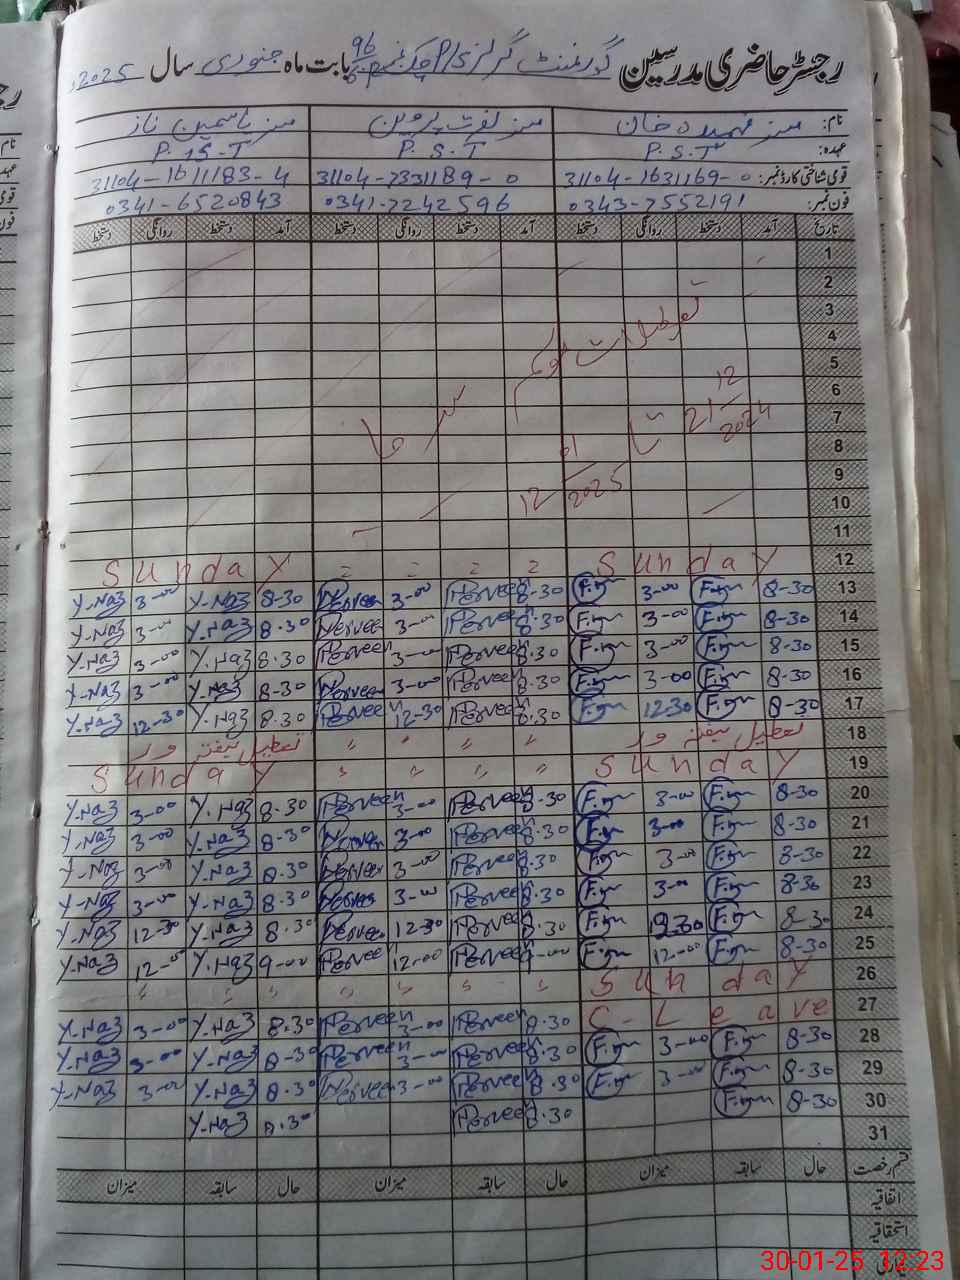 رجسٹر حاضری مدرسین گورنمنٹ گرلز P/S چک نمبر 96/6-R بابت ماہ جنوری سال 2025ء
نام: مسز فہمیدہ خان مسز نصرت پروین مسز یاسمین ناز
عہدہ: P.S.T P.S.T P.S.T
قومی شناختی کارڈ نمبر: 31104-1631169-0 31104-7331189-0 31104-1611183-4
فون نمبر: 0343-7552191 0341-7242596 0341-6520843
تاریخ آمد دستخط روانگی دستخط آمد دستخط روانگی دستخط آمد دستخط روانگی دستخط
1
2
3
تعطیلات موسم سرما
4
5
6
21/12/2024 تا
7
8
9
12/01/2025
10
11
12 Sunday = = = = Sunday
13 8-30 F.gm 3-00 F.gm 8-30 Perveen 3-00 Perveen 8-30 Y-Naz 3-00 Y-Naz
14 8-30 F.gm 3-00 F.gm 8.30 Perveen 3-00 Perveen 8.30 Y.Naz 3-00 Y-Naz
15 8-30 F.gm 3-00 F.gm 8.30 Perveen 3-00 Perveen 8.30 Y.Naz 3-00 Y-Naz
16 8-30 F.gm 3-00 F.gm 8.30 Perveen 3-00 Perveen 8-30 Y.Naz 3-00 Y-Naz
17 8-30 F.gm 12-30 F.gm 8.30 Perveen 12-30 Perveen 8.30 Y.Naz 12-30 Y-Naz
18 تعطیل ہفتہ وار " " " " تعطیل ہفتہ وار
19 Sunday " " " " Sunday
20 8-30 F.gm 3-00 F.gm 8.30 Perveen 3-00 Perveen 8.30 Y.Naz 3-00 Y-Naz
21 8-30 F.gm 3-00 F.gm 8.30 Perveen 3-00 Perveen 8-30 Y-Naz 3-00 Y-Naz
22 8-30 F.gm 3-00 F.gm 8.30 Perveen 3-00 Perveen 8.30 Y-Naz 3-00 Y-Naz
23 8-30 F.gm 3-00 F.gm 8.30 Perveen 3-00 Perveen 8.30 Y-Naz 3-00 Y-Naz
24 8-30 F.gm 12.30 F.gm 8.30 Perveen 12-30 Perveen 8.30 Y-Naz 12-30 Y-Naz
25 8-30 F.gm 12-00 F.gm 9-00 Perveen 12-00 Perveen 9-00 Y.Naz 12-00 Y-Naz
26 Sunday " " " " " " " "
27 C-Leave 8.30 Perveen 3-00 Perveen 8.30 Y-Naz 3-00 Y-Naz
28 8-30 F.gm 3-00 F.gm 8.30 Perveen 3-00 Perveen 8-30 Y-Naz 3-00 Y-Naz
29 8-30 F.gm 3-00 F.gm 8.30 Perveen 3-00 Perveen 8.30 Y-Naz 3-00 Y-Naz
30 8-30 F.gm 8.30 Perveen 8.30 Y-Naz
31
قسم رخصت حال سابقہ میزان حال سابقہ میزان حال سابقہ میزان
اتفاقیہ
استحقاقیہ
30-01-25 12:23